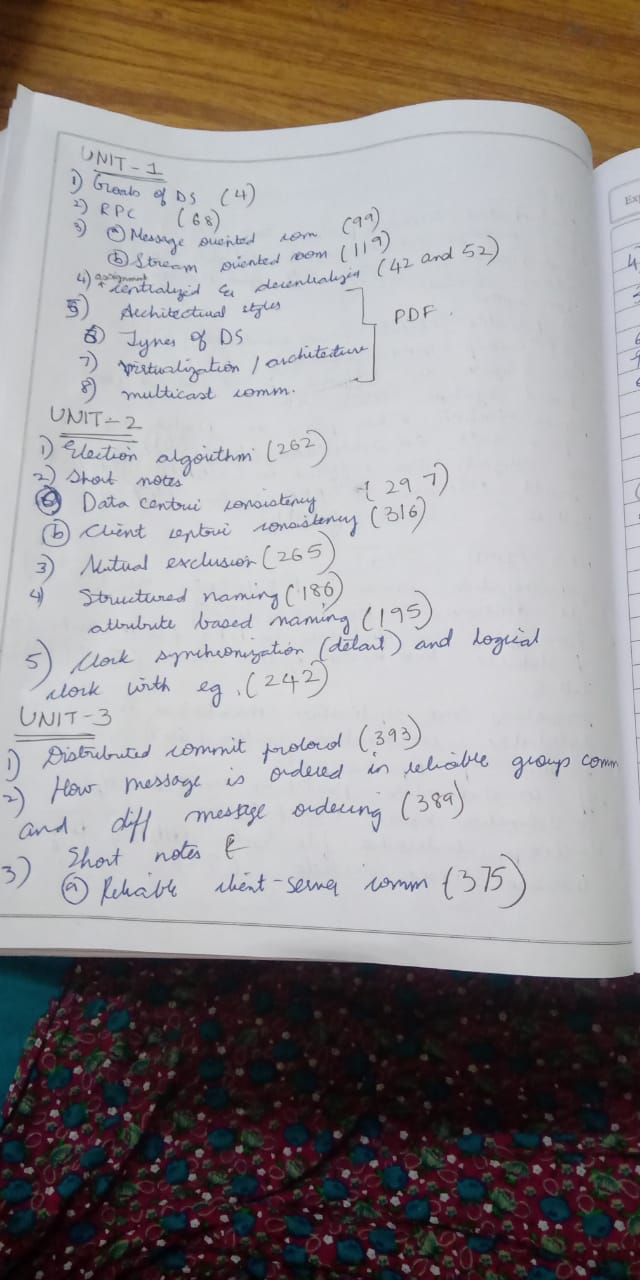 UNIT-1
1) Goals of DS (4)
2) RPC (68)
3) a Message oriented com (99)
b Stream oriented com (119)
4) assignment * centralized & decentralized (42 and 52)
5) Architectural styles
6) Types of DS
7) Virtualization / architecture
8) multicast comm.
PDF.
UNIT-2
1) Election algorithm (262)
2) Short notes
a Data centric consistency (297)
b Client centric consistency (316)
3) Mutual exclusion (265)
4) Structured naming (186)
attribute based naming (195)
5) Clock synchronization (detail) and Logical
clock with eg. (242)
UNIT-3
1) Distributed commit protocol (393)
2) How message is ordered in reliable group comm
and diff message ordering (389)
3) Short notes
a Reliable client-server comm (375)
Exp